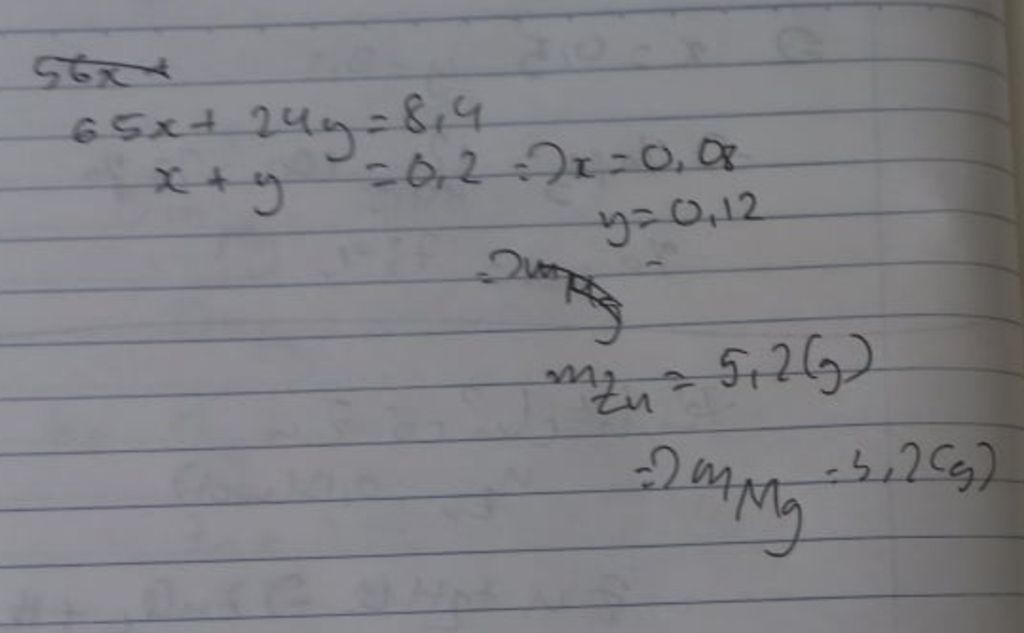 56x+
65x + 24y = 8,4
x + y = 0,2 => x = 0,08
y = 0,12
=> mMg
mZn = 5,2(g)
=> mMg = 3,2(g)